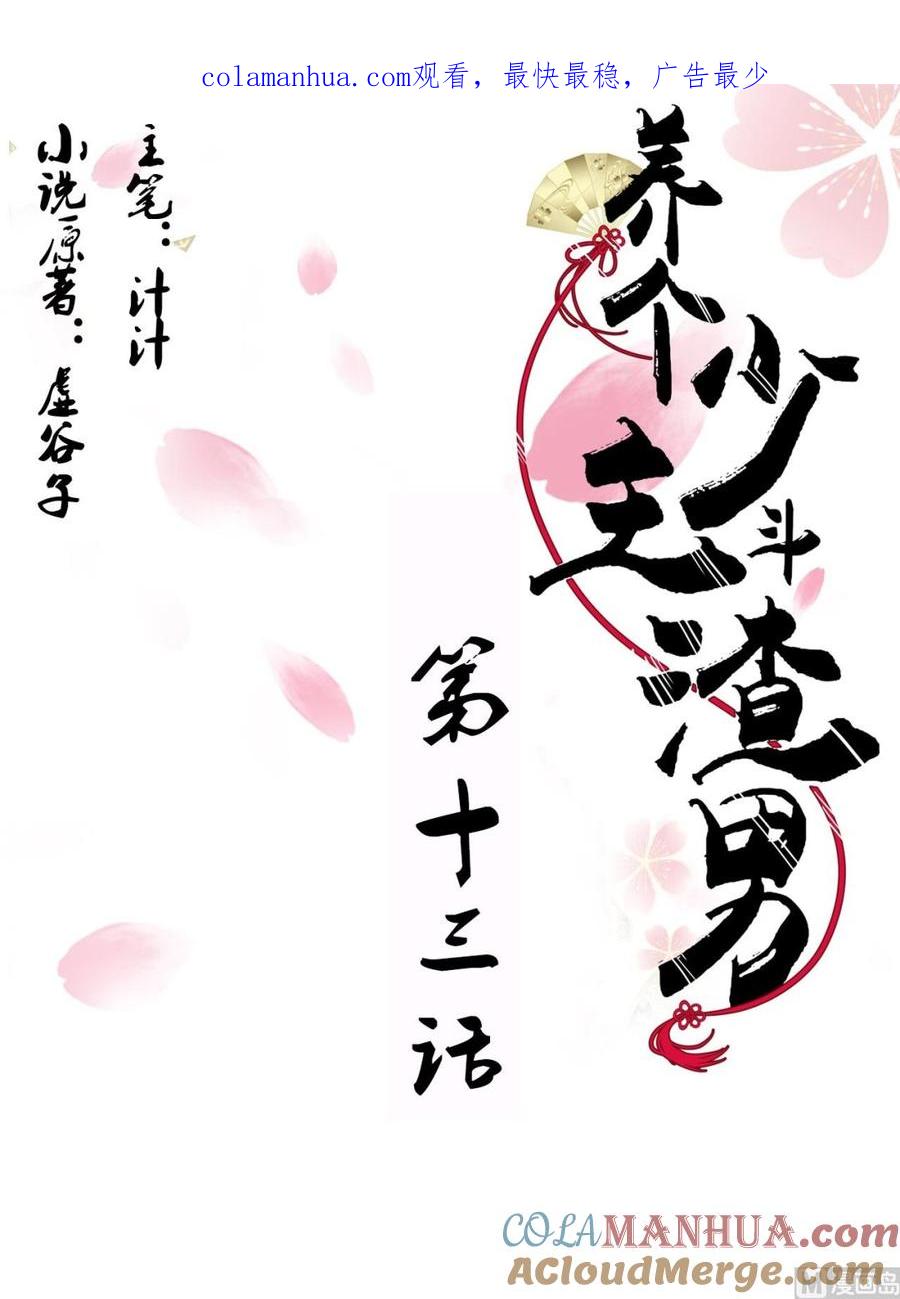 colamanhua.com观看，最快最稳，广告最少
养个少主斗渣男
第十三话
主笔：汁汁
小说原著：虚谷子
COLAMANHUA.com
ACloudMerge.com
漫画岛